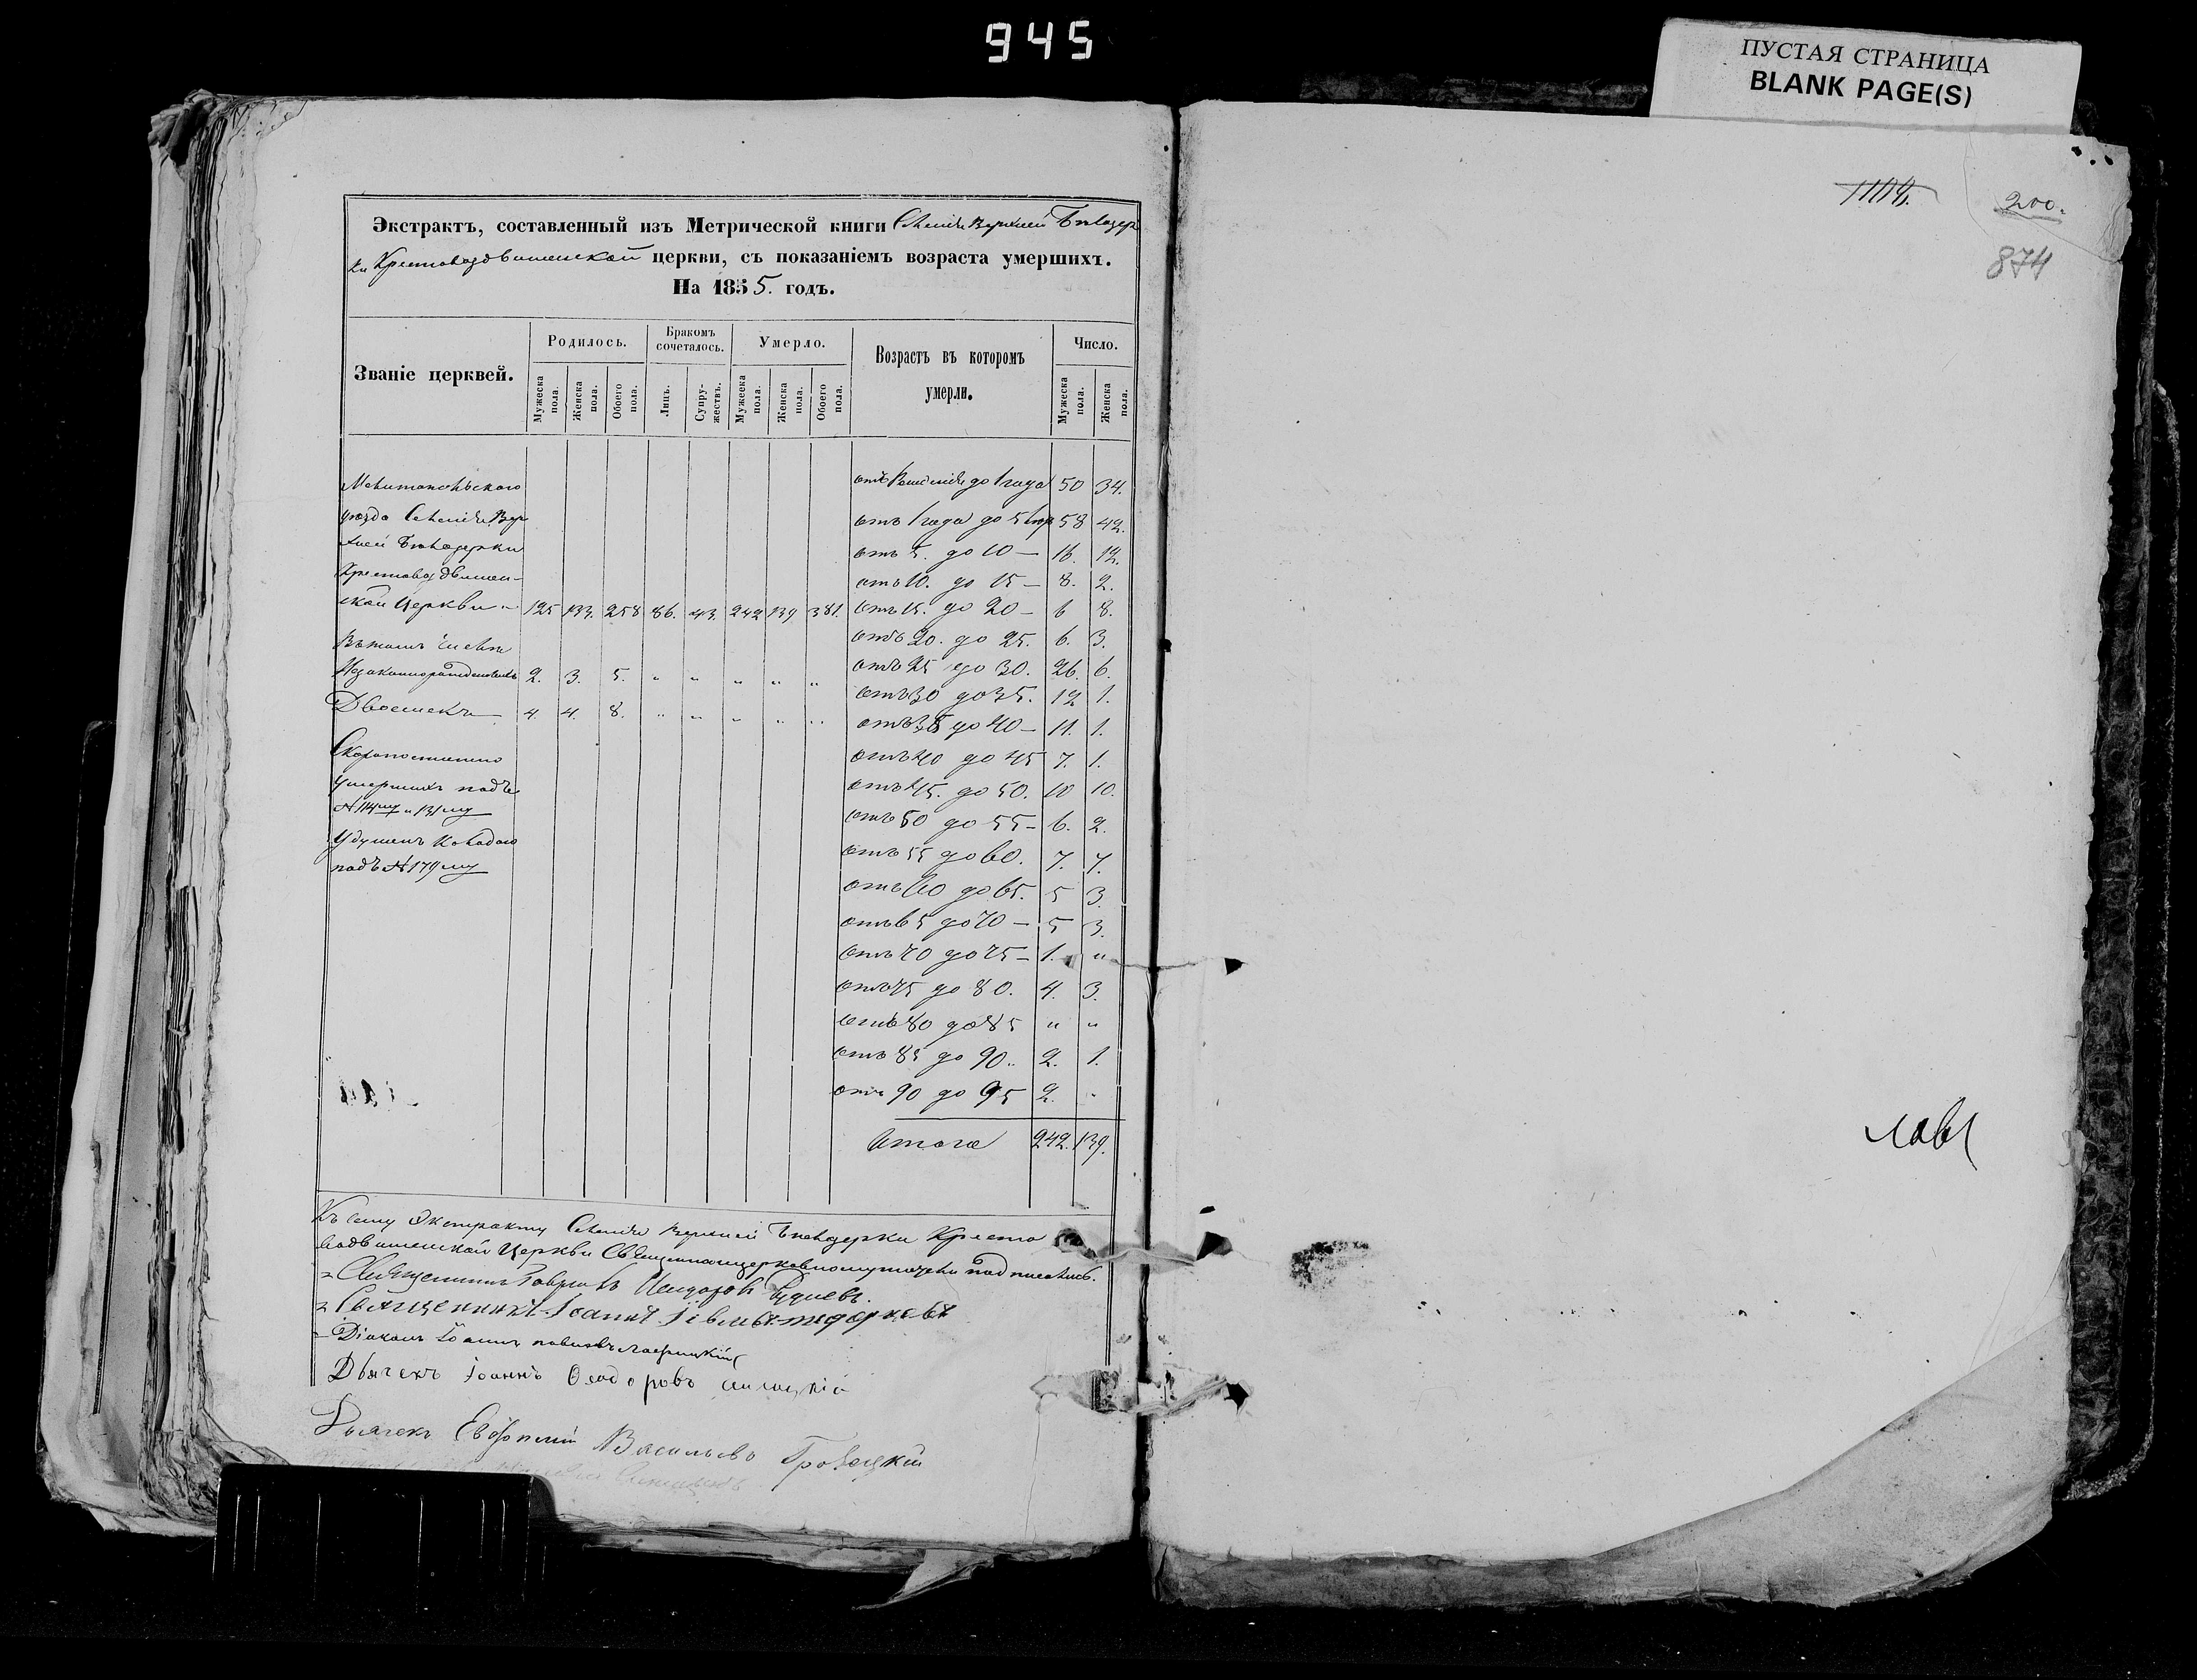 945
ПУСТАЯ СТРАНИЦА
BLANK PAGE(S)
1104.
200.
874
Экстрактъ, составленный изъ Метрической книги Селенія Верхней Бѣлозер
ки Крестовоздвиженской церкви, съ показаніемъ возраста умершихъ.
На 1855. годъ.
Званіе церквей.
Родилось.
Бракомъ сочеталось.
Умерло.
Возрастъ въ которомъ умерли.
Число.
Мужеска пола.
Женска пола.
Обоего пола.
Лицъ.
Супру-жествъ.
Мужеска пола.
Женска пола.
Обоего пола.
Мужеска пола.
Женска пола.
Мелитопольскаго
уѣзда Селенія Вер
хней Бѣлозерки
Крестовоздвижен-
ской Церкви 125 133. 258 86. 43. 242 139 381.
Въ томъ числѣ
Незаконнорожденныхъ 2. 3. 5. " " " " "
Двоенекъ 4. 4. 8. " " " " "
Скоропостижно
умершихъ подъ
№ 114му и 131му
подъ № 179му
отъ Рожденія до 1 года 50 34.
отъ 1 года до 5 58 42.
отъ 5. до 10 — 16. 12.
отъ 10. до 15 — 8. 2.
отъ 15. до 20 — 6 8.
отъ 20. до 25. 6. 3.
отъ 25 до 30. 26. 6.
отъ 30 до 35. 12 1.
отъ 35 до 40 — 11. 1.
отъ 40 до 45 7. 1.
отъ 45. до 50. 10 10.
отъ 50 до 55 — 6. 2.
отъ 55 до 60. 7. 7.
отъ 60 до 65. 5 3.
отъ 65 до 70 — 5 3.
отъ 70 до 75 — 1. "
отъ 75 до 80. 4. 3.
отъ 80 до 85 " "
отъ 85 до 90. 2. 1.
отъ 90 до 95 2. "
Итого 242. 139.
Къ сему Экстракту Селенія Верхней Бѣлозерки Кресто
воздвиженской Церкви подписались.
Священникъ Гавріилъ Исидоровъ
Священникъ Іоаннъ
Діаконъ Іоаннъ
Дьячекъ Іоаннъ Ѳеодоровъ
Дьячекъ Евфимій Васильевъ